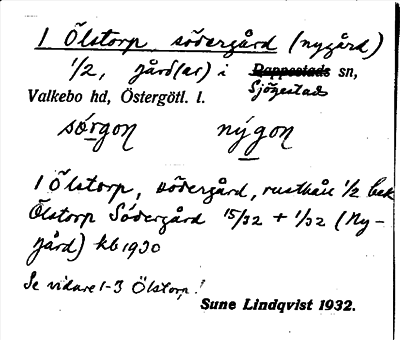 1 Ölstorp, södergård (nygård)
1/2, gård(ar) i Rappestads sn,
Sjögestad
Valkebo hd, Östergötl. l.
sörgon nýgon
1 Ölstorp, södergård, rusthåll 1/2
Ölstorp Södergård 15/32 + 1/32 (Ny-
gård) kb 1930
Se vidare 1-3 Ölstorp!
Sune Lindqvist 1932.